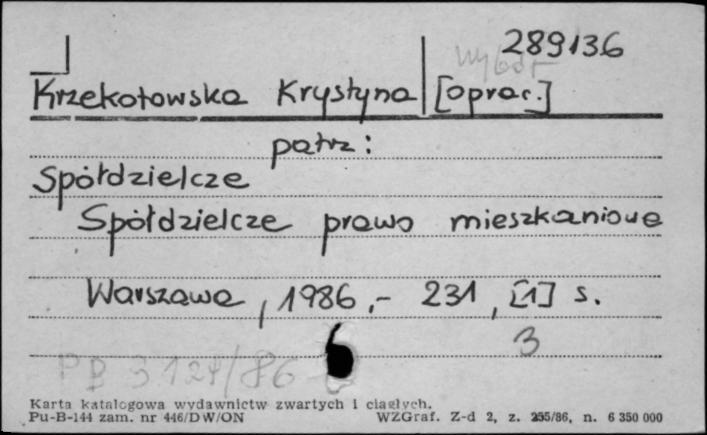 289136
wybór
Krzekotowska Krystyna [oprac.]
patrz:
Spółdzielcze
Spółdzielcze prawo mieszkaniowe
Warszawa, 1986.- 231, [1] s.
3
PB 3124/86
Karta katalogowa wydawnictw zwartych i ciągłych.
Pu-B-144 zam. nr 446/DW/ON WZGraf. Z-d 2, z. 255/86, n. 6 350 000